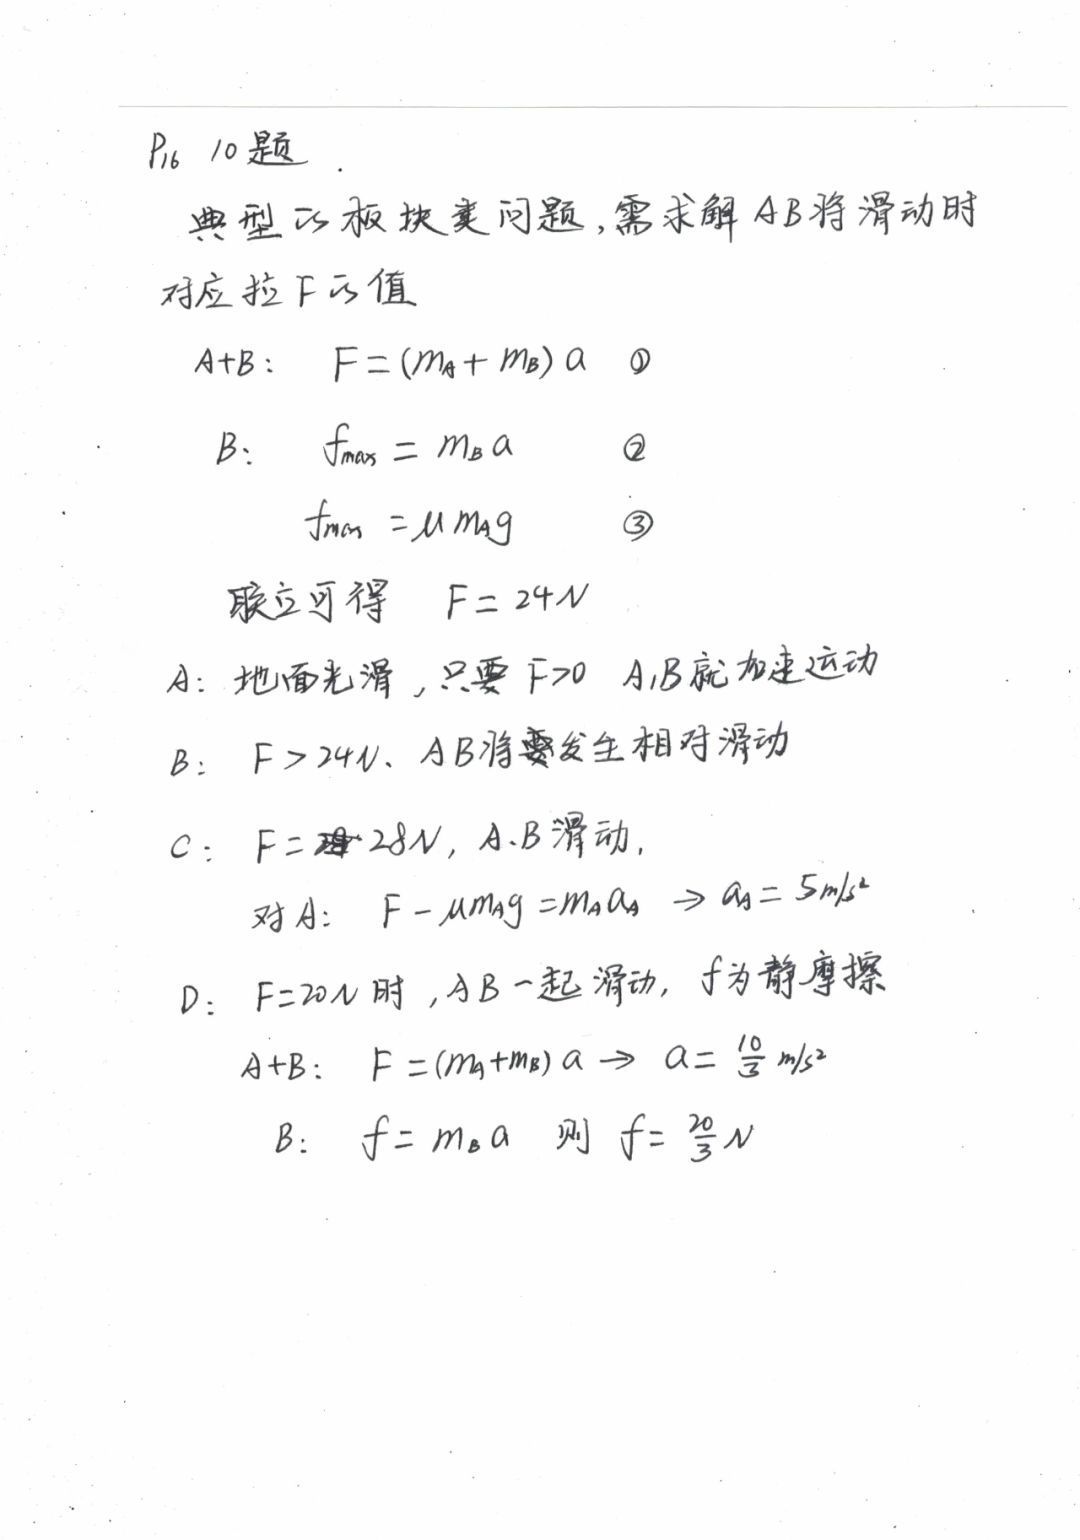 P16 10题.
典型的板块类问题,需求解AB将滑动时
对应拉F的值
A+B: F=(mA+mB)a ①
B: fmax=mBa ②
fmax=μmAg ③
联立可得 F=24N
A: 地面光滑,只要F>0 A,B就加速运动
B: F>24N、AB将要发生相对滑动
C: F=28N, A.B滑动,
对A: F-μmAg=mAaA → aA=5m/s²
D: F=20N时,AB一起滑动, f为静摩擦
A+B: F=(mA+mB)a → a=10/3 m/s²
B: f=mBa 则 f=20/3 N